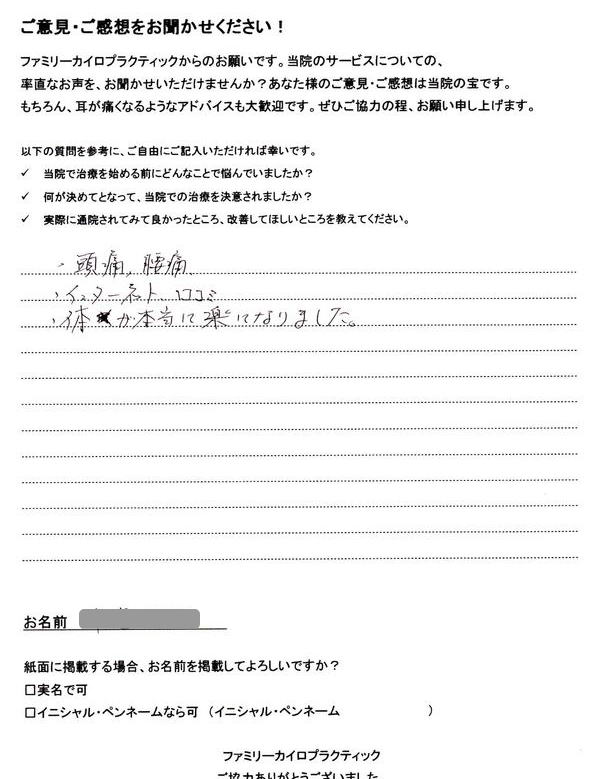 ご意見・ご感想をお聞かせください！
ファミリーカイロプラクティックからのお願いです。当院のサービスについての、
率直なお声を、お聞かせいただけませんか？あなた様のご意見・ご感想は当院の宝です。
もちろん、耳が痛くなるようなアドバイスも大歓迎です。ぜひご協力の程、お願い申し上げます。
以下の質問を参考に、ご自由にご記入いただければ幸いです。
✓ 当院で治療を始める前にどんなことで悩んでいましたか？
✓ 何が決めてとなって、当院での治療を決意されましたか？
✓ 実際に通院されてみて良かったところ、改善してほしいところを教えてください。
・頭痛，腰痛
・インターネット、口コミ
・体が本当に楽になりました。
お名前
紙面に掲載する場合、お名前を掲載してよろしいですか？
□実名で可
□イニシャル・ペンネームなら可 （イニシャル・ペンネーム ）
ファミリーカイロプラクティック
ご協力ありがとうございました